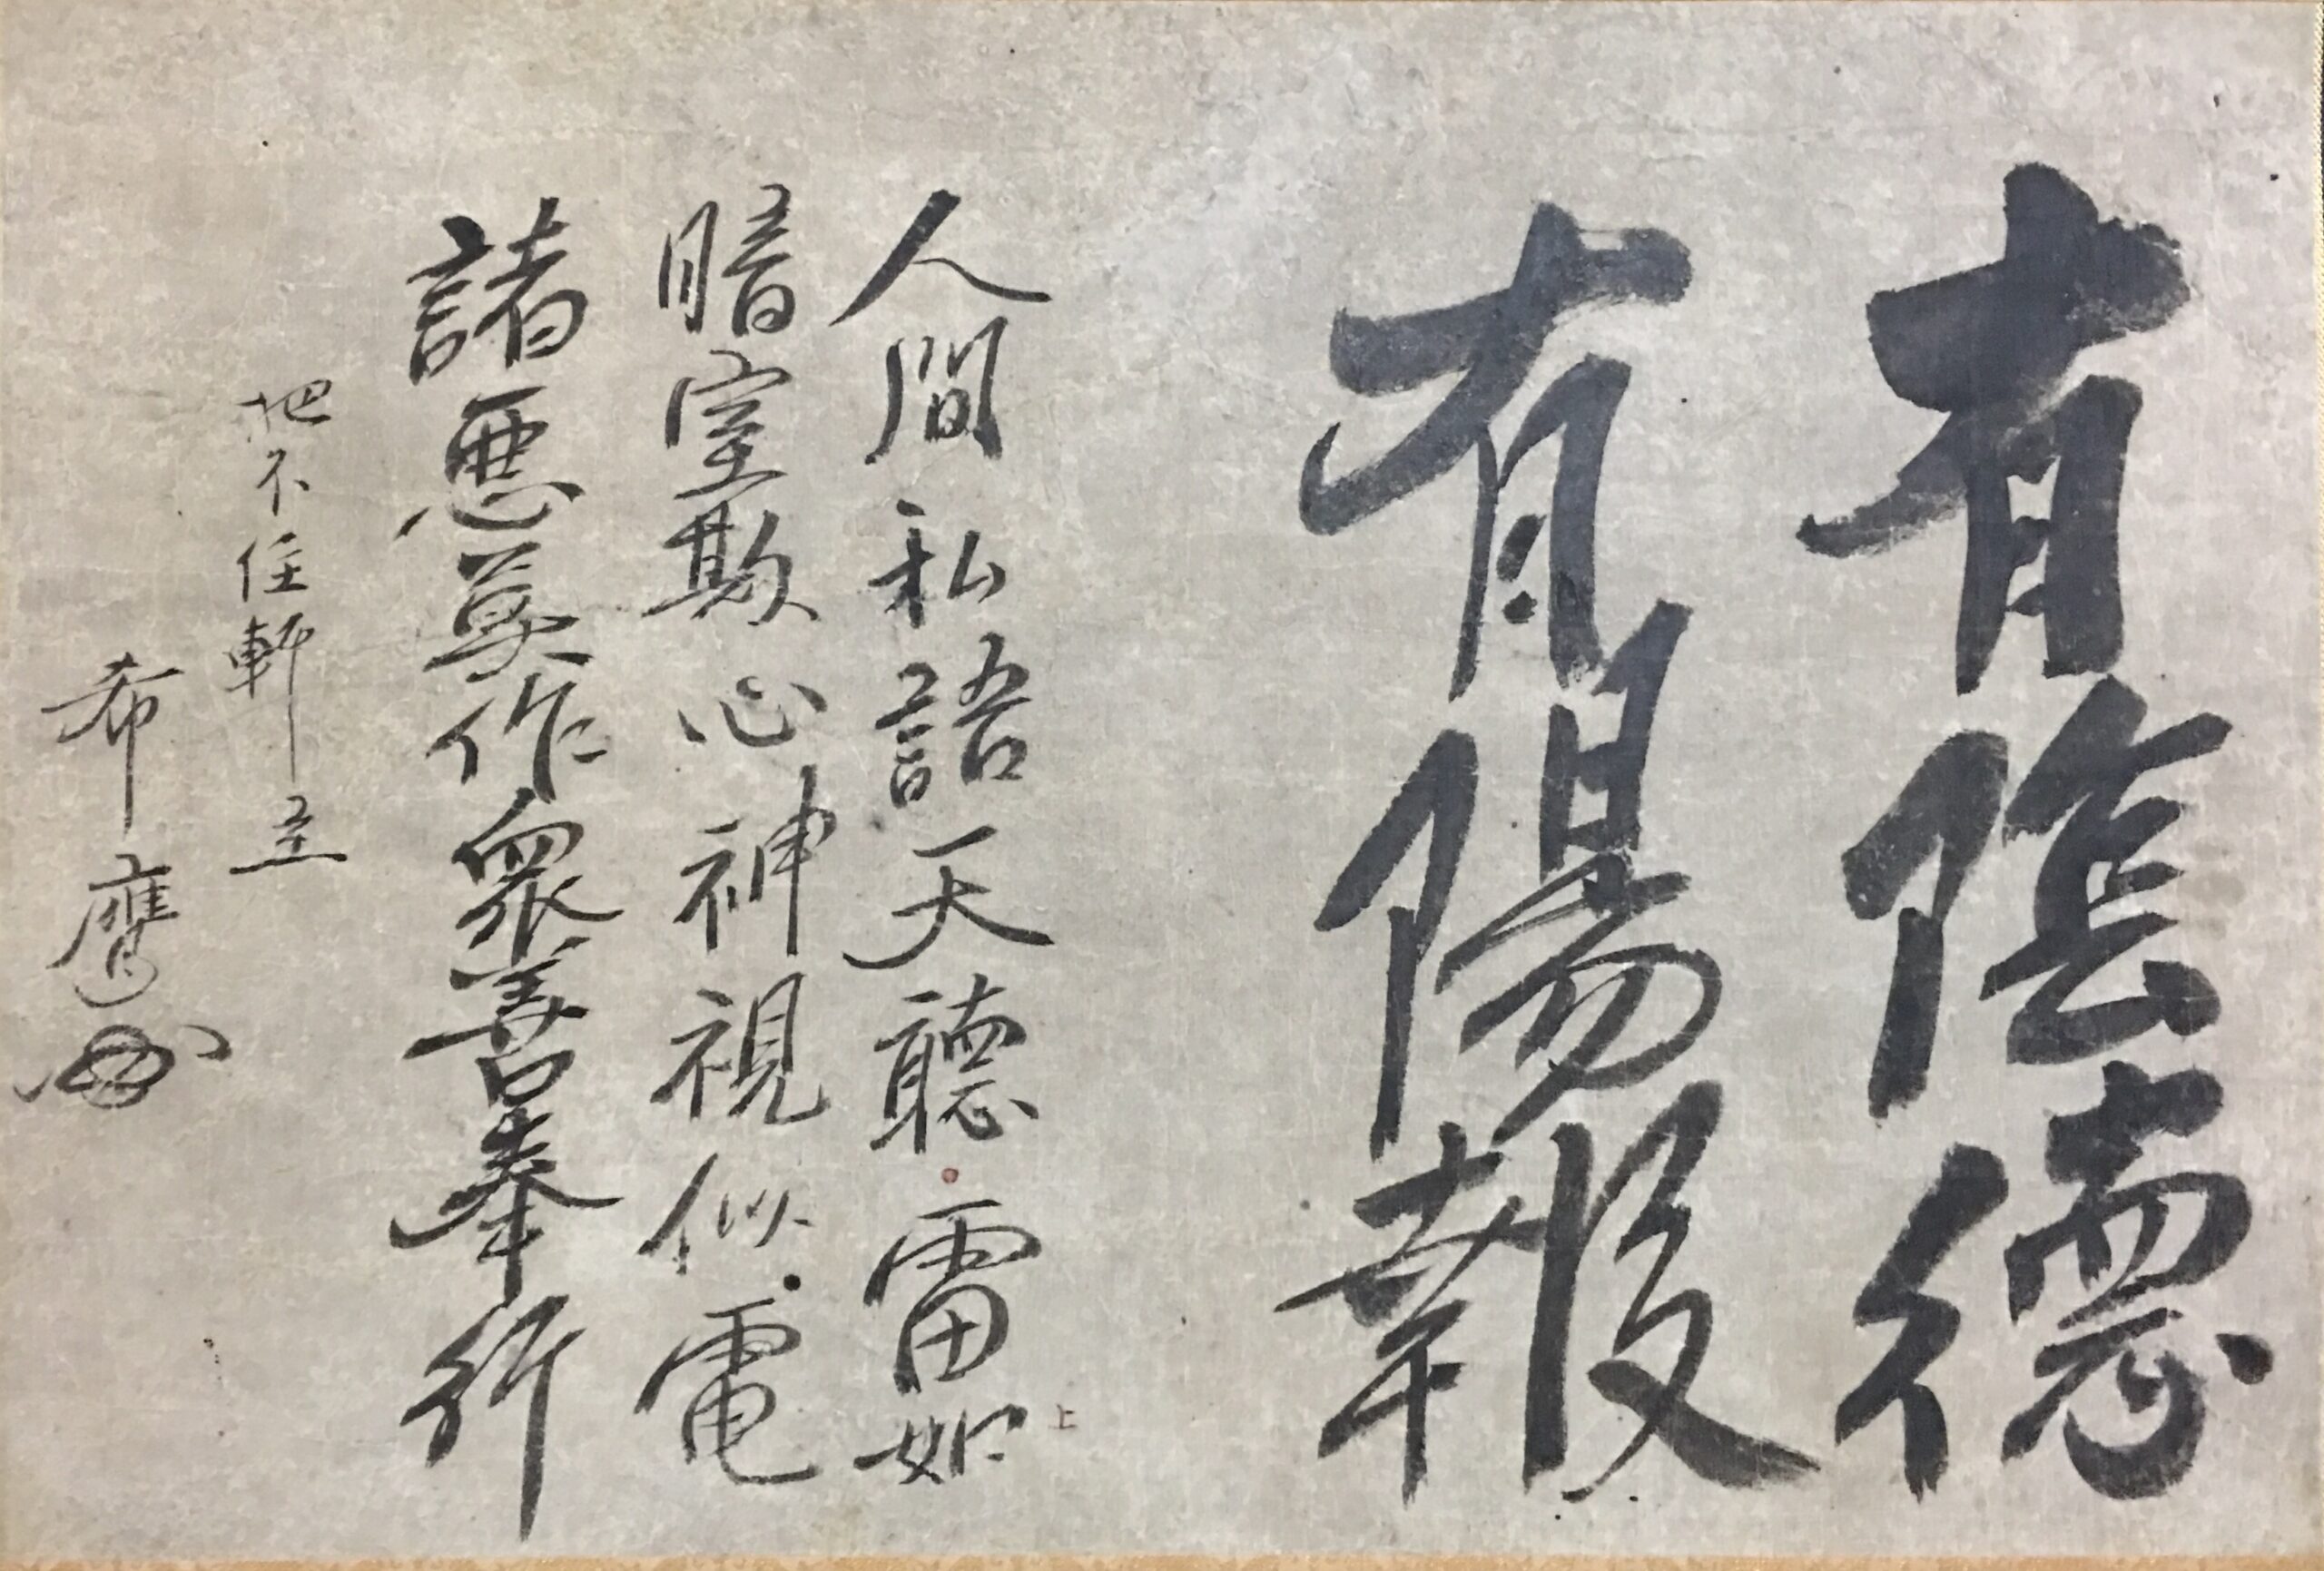 有陰德
有陽報
人間私語天聽雷如
上
暗室欺心神視似電
諸惡莫作衆善奉行
把不住軒主
希膺